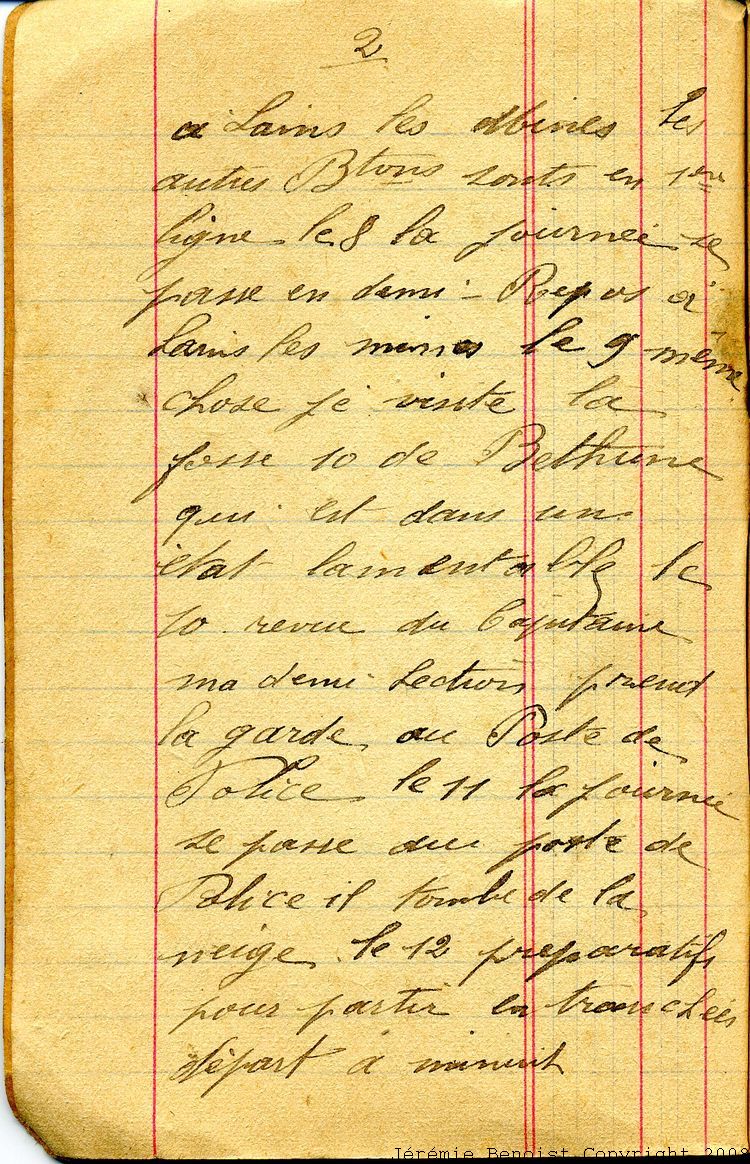 2
a Sains les Mines les
autres Btons sonts en 1ere
ligne le 8 la journée se
passe en demi-Repos à
Sains les mines le 9 même
chose je visite la
fosse 10 de Bethune
qui est dans un
état lamentable le
10 revue du Capitaine
ma demi Section prend
la garde au Poste de
Police le 11 la journée
se passe au poste de
Police il tombe de la
neige le 12 preparatifs
pour partir en tranchées
départ à minuit
Jérémie Benoist Copyright 2008